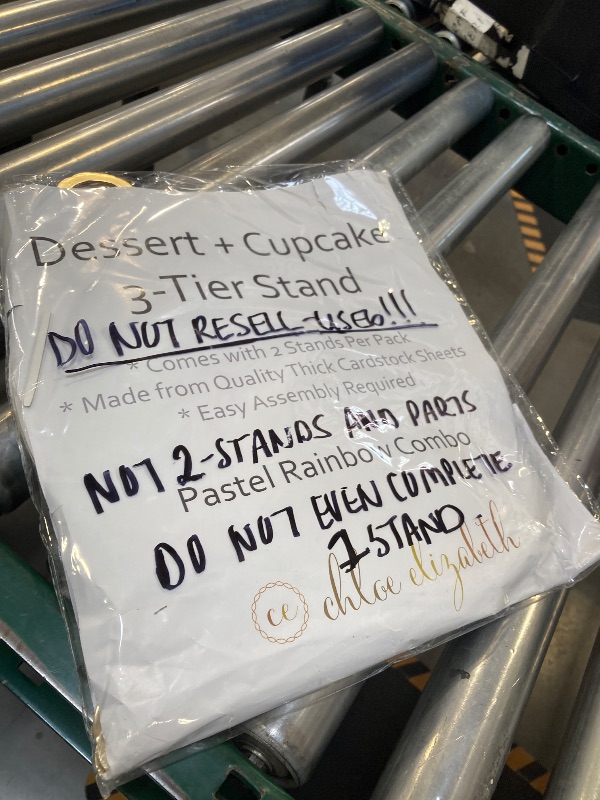 Dessert + Cupcake
3-Tier Stand
DO NOT RESELL-USED!!!
* Comes with 2 Stands Per Pack
* Made from Quality Thick Cardstock Sheets
* Easy Assembly Required
NOT 2-STANDS AND PARTS
Pastel Rainbow Combo
DO NOT EVEN COMPLETE
1 STAND.
ce chloe elizabeth